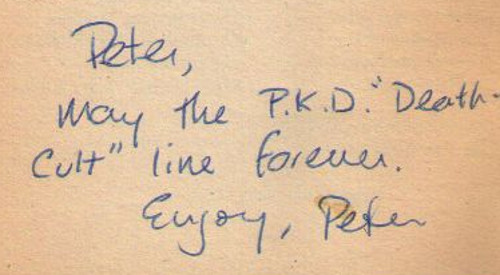 Peter,
May the P.K.D. "Death-
Cult" line forever.
Enjoy, Peter